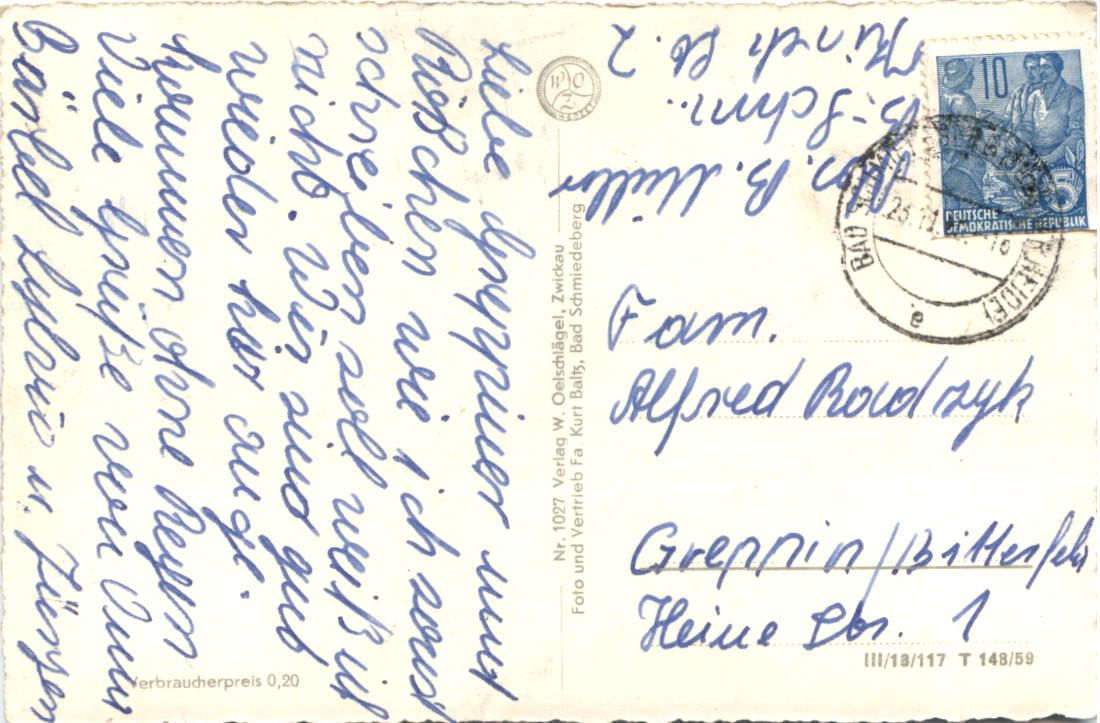 Liebe Greppiner und
Rößchen wie ich sonst
schreiben soll weiß ich
nicht. Wir sind gut
wieder hier ange-
kommen ohne Regen
Viele Grüße von
Bärbel Sylvia u. Jürgen
B. Müller
B.-Schm.
2
Fam.
Alfred Radzyk
Greppin/Bitterfeld
Heine Str. 1
Nr. 1027 Verlag W. Oelschlägel, Zwickau
Foto und Vertrieb Fa. Kurt Baltz, Bad Schmiedeberg
Verbraucherpreis 0,20
III/18/117 T 148/59
WOZ
10
5
DEUTSCHE
DEMOKRATISCHE REPUBLIK
BAD
HEIDE)
e